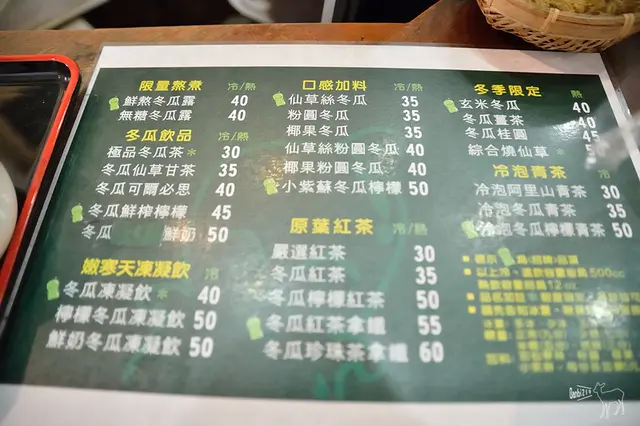 限量熬煮 冷/熱
鮮熬冬瓜露 40
無糖冬瓜露 40
冬瓜飲品 冷/熱
極品冬瓜茶* 30
冬瓜仙草甘茶 35
冬瓜可爾必思 40
冬瓜鮮榨檸檬 45
冬瓜 鮮奶 50
嫩寒天凍凝飲 冷
冬瓜凍凝飲* 40
檸檬冬瓜凍凝飲 50
鮮奶冬瓜凍凝飲 50
口感加料 冷/熱
仙草絲冬瓜 35
粉圓冬瓜 35
椰果冬瓜 35
仙草絲粉圓冬瓜 40
椰果粉圓冬瓜 40
小紫蘇冬瓜檸檬 50
原葉紅茶 冷/熱
嚴選紅茶 30
冬瓜紅茶 35
冬瓜檸檬紅茶 50
冬瓜紅茶拿鐵 55
冬瓜珍珠茶拿鐵 60
冬季限定 冷/熱
玄米冬瓜 40
冬瓜薑茶 40
冬瓜桂圓 45
綜合燒仙草*
冷泡青茶 冷
冷泡阿里山青茶 30
冷泡冬瓜青茶 35
冷泡冬瓜檸檬青茶 50
500cc
12oz
Danbi